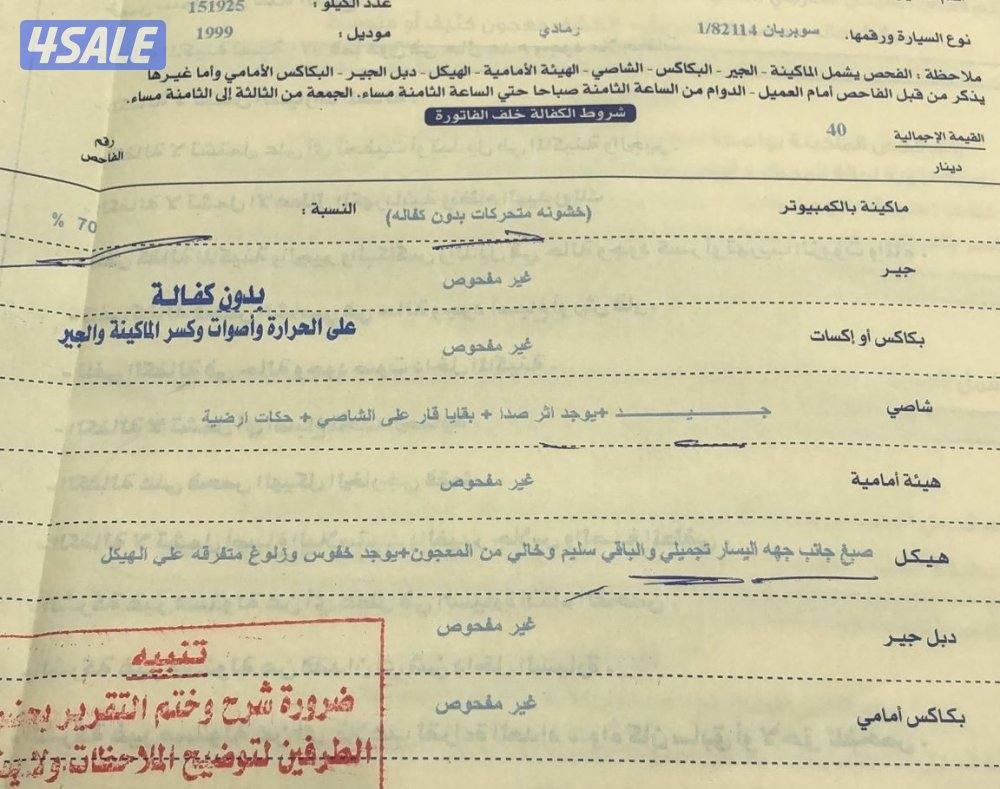 4SALE
عدد الكيلو : 151925
نوع السيارة ورقمها. سوبربان 1/82114 رمادي موديل : 1999
ملاحظة : الفحص يشمل الماكينة - الجير - البكاكس - الشاصي - الهيئة الأمامية - الهيكل - دبل الجير - البكاكس الأمامي وأما غيرها
يذكر من قبل الفاحص أمام العميل - الدوام من الساعة الثامنة صباحا حتي الساعة الثامنة مساء. الجمعة من الثالثة إلى الثامنة مساء.
شروط الكفالة خلف الفاتورة
القيمة الإجمالية 40
دينار
رقم
الفاحص
ماكينة بالكمبيوتر (خشونه متحركات بدون كفاله) النسبة : 70 %
جير غير مفحوص
بدون كفالة
على الحرارة وأصوات وكسر الماكينة والجير
بكاكس أو إكسات غير مفحوص
شاصي جـــــيـــــد +يوجد اثر صدا + بقايا قار على الشاصي + حكات ارضية
هيئة أمامية غير مفحوص
هيكل صبغ جانب جهه اليسار تجميلي والباقي سليم وخالي من المعجون+يوجد خفوس وزلوغ متفرقه على الهيكل
دبل جير غير مفحوص
بكاكس أمامي غير مفحوص
تنبيه
ضرورة شرح وختم التقرير
الطرفين لتوضيح الملاحظات